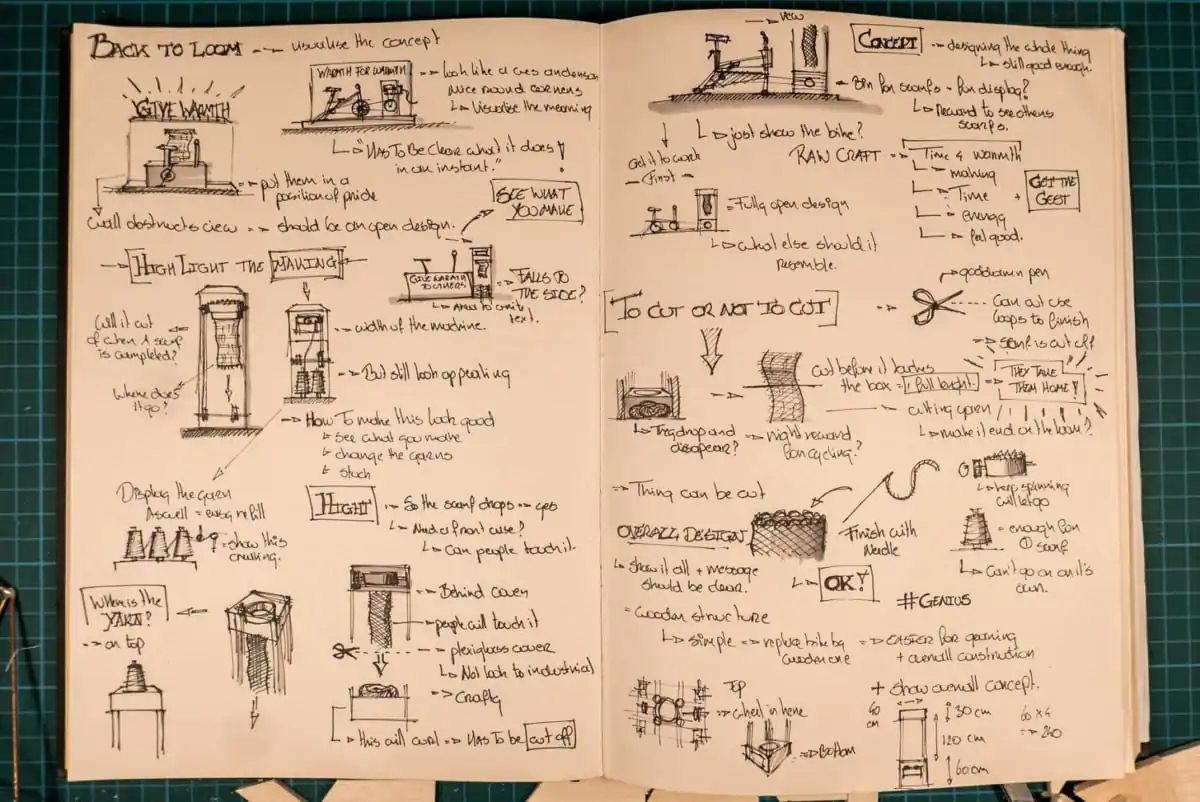 BACK TO LOOM --→ visualise the concept
GIVE WARMTH
WARMTH FOR WARMTH
look like a wes anderson
nice round corners
Visualise the meaning
"HAS TO BE Clear what it does
in an instant."
put them in a
position of pride
Wall obstructs view
should be an open design.
SEE WHAT
YOU MAKE
HIGHLIGHT THE MAKING
GIVE WARMTH
TO OTHERS
FALLS TO
THE SIDE?
text.
Will it cut
of when A scarf
is completed?
Where does
it go?
width of the machine.
But still look appealing
HOW TO make this look good
see what you make
change the yarns
Display the yarn
Aswell = easy refill
show this
HIGHT
So the scarf drops
yes
Need a front case?
Can people touch it.
WHERE IS THE
YARN?
on top
Behind cover
people will touch it
plexiglass cover
Not look to industrial
Crafty
this will curl
HAS TO BE cut off
CONCEPT
designing the whole thing
still good enough.
Bin for scarfs - for display?
Reward to see others
scarfs.
just show the bike?
Get it to work
- First -
RAW CRAFT
Time & warmth
making
Time
energy
feel good.
+
GET THE
GEST
Fully open design
what else should it
resemble.
TO CUT OR NOT TO CUT
Can cut use
loops to finish
scarf is cut off
cut before it touches
the box = 1 full lenght.
THEY TAKE
THEM HOME!
cutting yarn
make it end on the loom?
drop and
disapear?
reward
for cycling?
Thing can be cut
keep spinning
will let go
OVERALL DESIGN
Finish with
Needle
enough for
① scarf
Can't go on on it's
own.
show it all + message
should be clear.
OK!
#GENIUS
= wooden structure
simple
replace bike by
wooden one
EASIER for gearing
+ overall construction
+ show overall concept.
Top
wheel in here
Bottom
40
cm
30 cm
120 cm
60 cm
60 x 4
240